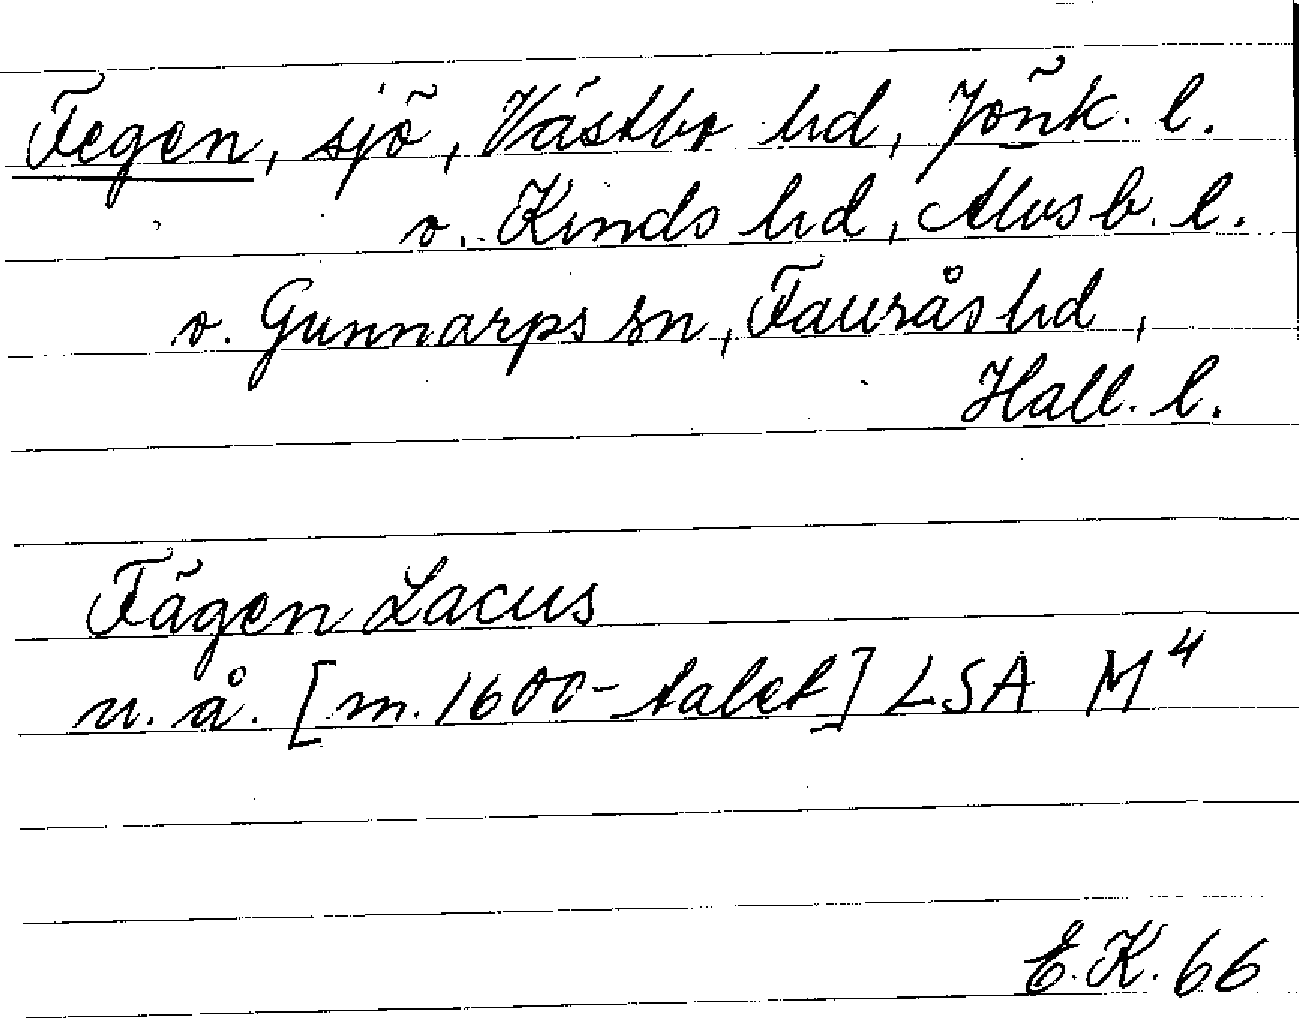 Fegen, sjö, Västbo hd, Jönk. l.
o. Kinds hd, Älvsb. l.
o. Gunnarps sn, Faurås hd,
Hall. l.
Fägen Lacus
u. å. [m. 1600-talet] LSA M4
E.K. 66